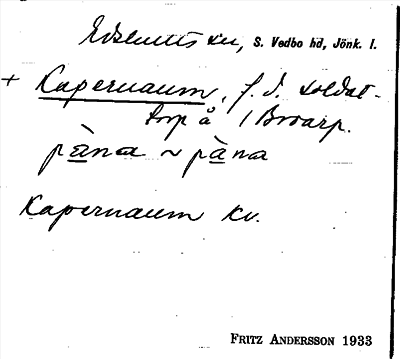 Edshults sn, S. Vedbo hd, Jönk. l.
+ Kapernaum, f. d. soldat-
torp å 1 Broarp.
pàna ~ pàna
Kapernaum kv.
FRITZ ANDERSSON 1933